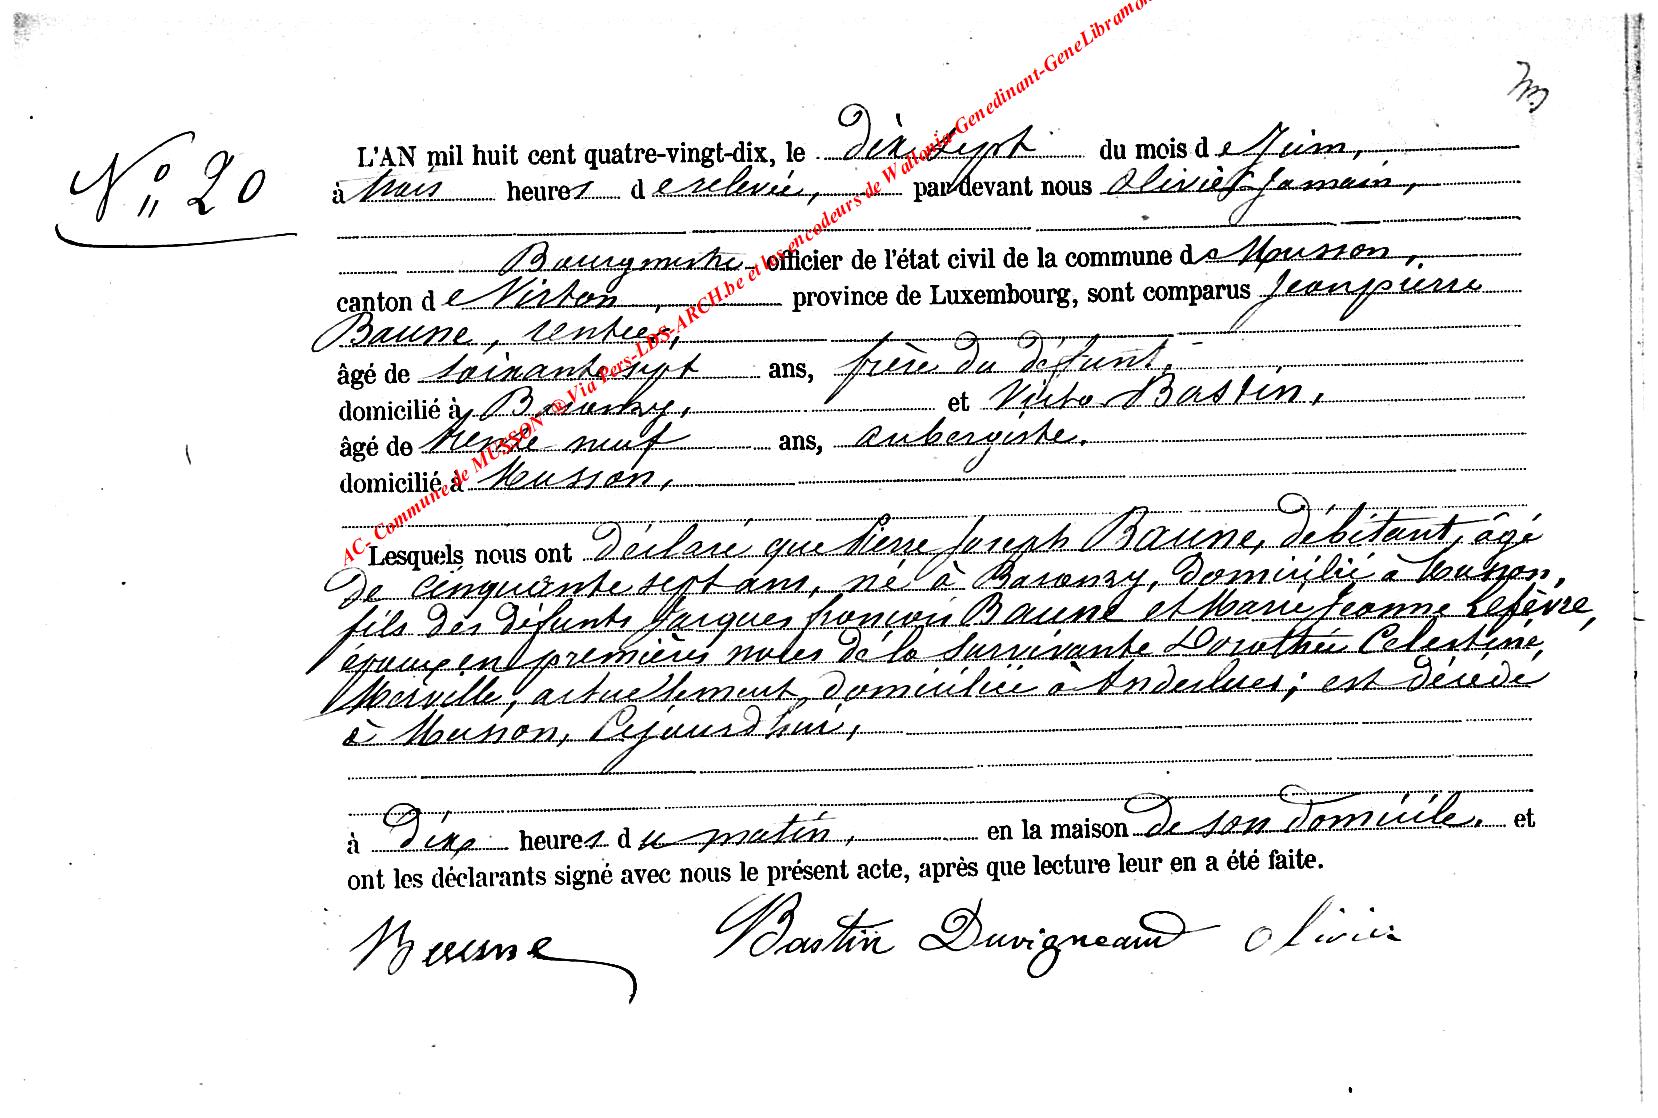 N° 20
L'AN mil huit cent quatre-vingt-dix, le dix sept du mois de Juin,
à trois heures de relevée, par devant nous Olivier Jamain,
Bourgmestre officier de l'état civil de la commune de Musson,
canton de Virton, province de Luxembourg, sont comparus Jean pierre
Baune, rentier,
âgé de soixante sept ans, frère du défunt,
domicilié à Baranzy, et Victor Bastin,
âgé de trente neuf ans, aubergiste.
domicilié à Musson,
Lesquels nous ont déclaré que Pierre Joseph Baune, débitant, âgé
de cinquante sept ans, né à Baranzy, domicilié à Musson,
fils des défunts Jacques françois Baune et Marie Jeanne Lefèvre,
époux en premières noces de la survivante Dorothée Celestine
Merville, actuellement domiciliée à Anderlues; est décédé
à Musson, Cejourd'hui,
à dix heures du matin, en la maison de son domicile. et
ont les déclarants signé avec nous le présent acte, après que lecture leur en a été faite.
Baune Bastin Duvigneaud Olivier
AC- Commune de MUSSON @ Via Pers-LDS-ARCH.be et les encodeurs de Wallonia-Genedinant-GeneLibramon